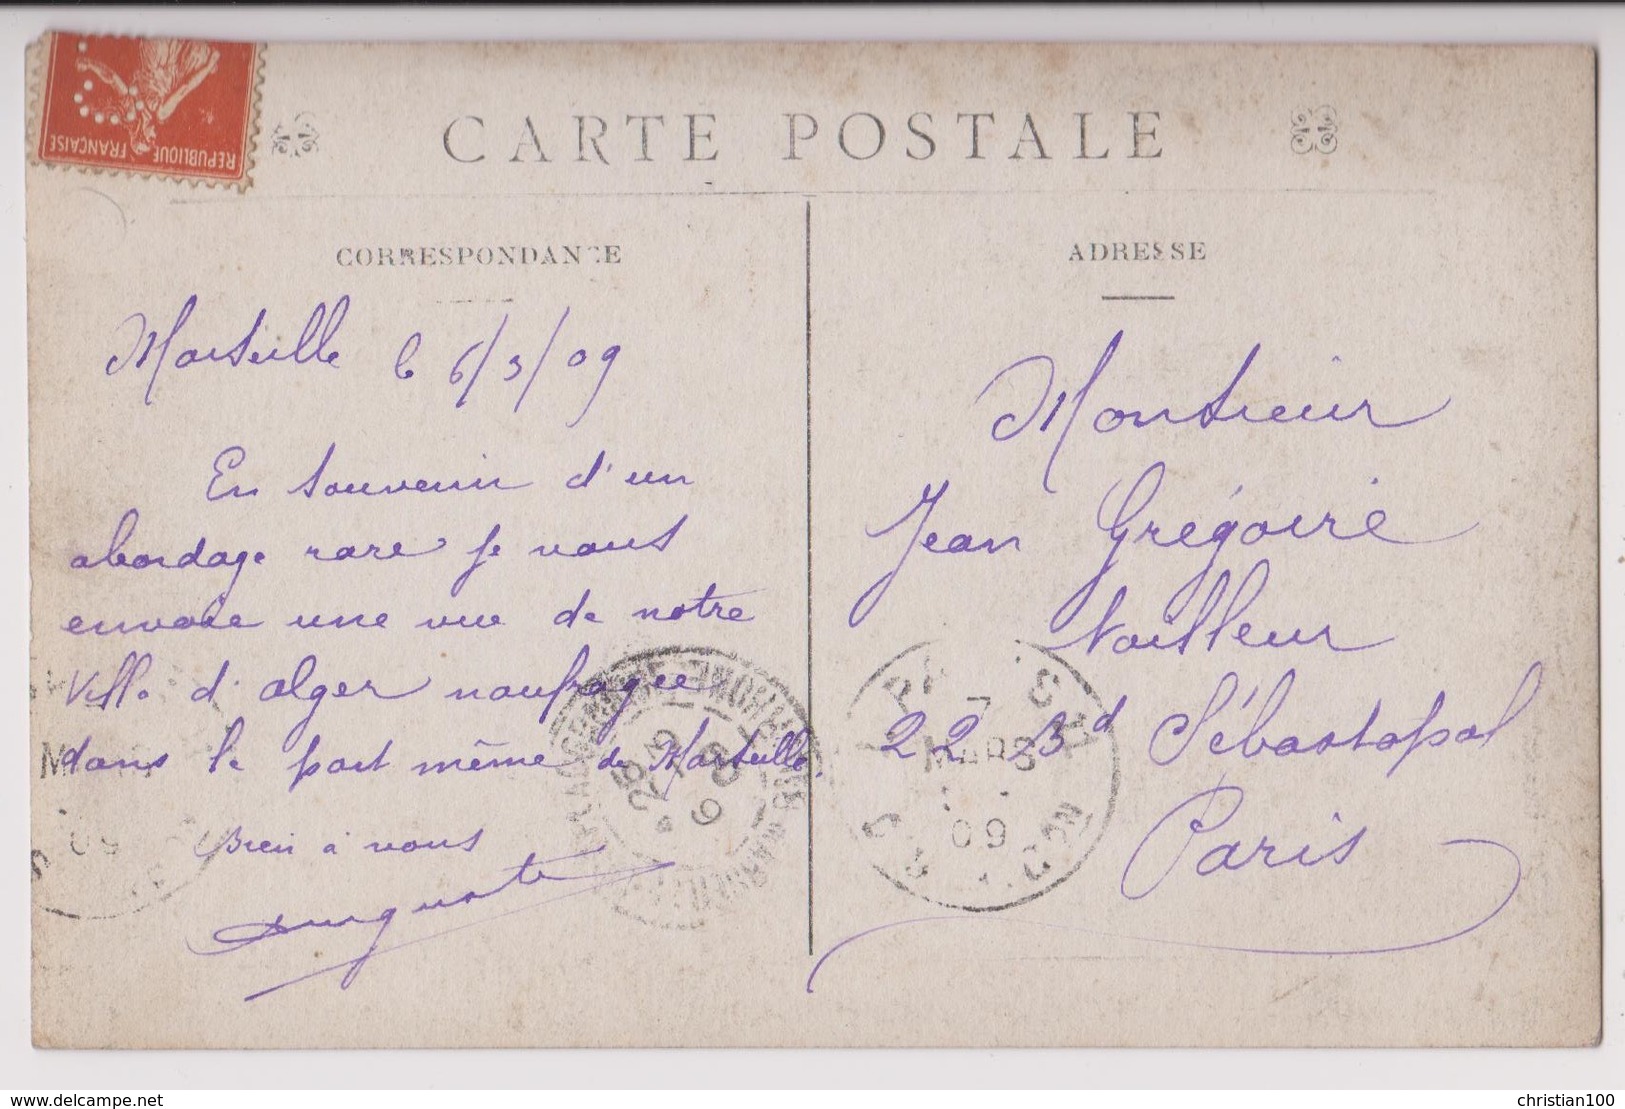 REPUBLIQUE FRANÇAISE
CARTE POSTALE
CORRESPONDANCE
Marseille le 6/3/09
En souvenir d'un
abordage rare je vous
envoie une vue de notre
Ville d'alger naufragée
dans le port même de Marseille.
Bien à vous
Auguste
ADRESSE
Monsieur
Jean Grégoire
tailleur
22 Bd Sébastopol
Paris
7
MARS
09
delcampe.net
christian100